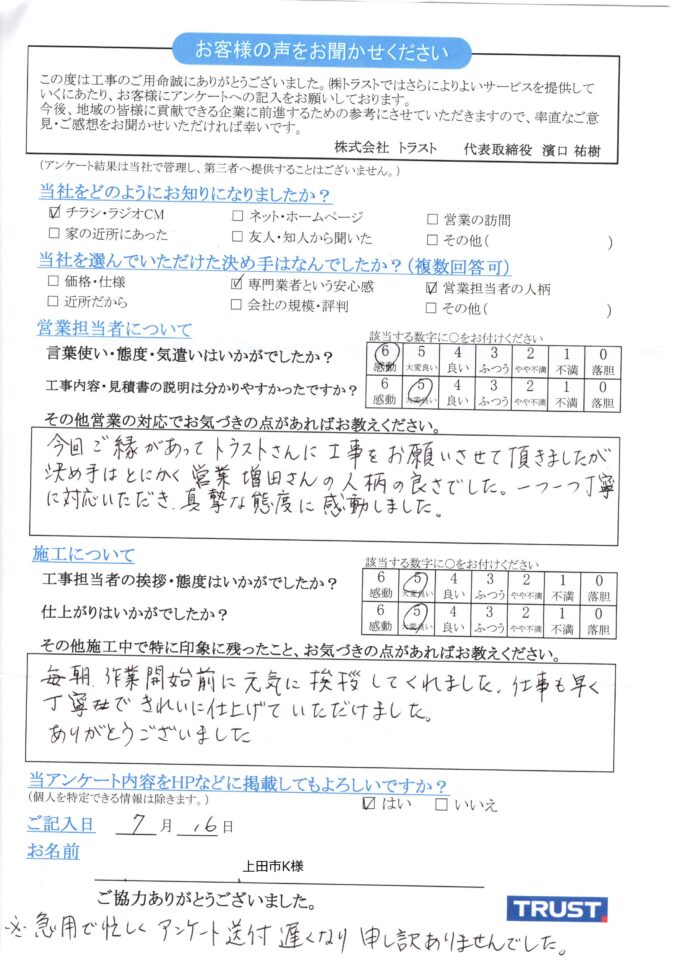 お客様の声をお聞かせください
この度は工事のご用命誠にありがとうございました。㈱トラストではさらによりよいサービスを提供して
いくにあたり、お客様にアンケートへの記入をお願いしております。
今後、地域の皆様に貢献できる企業に前進するための参考にさせていただきますので、率直なご意
見・ご感想をお聞かせいただければ幸いです。
株式会社 トラスト 代表取締役 濱口 祐樹
(アンケート結果は当社で管理し、第三者へ提供することはございません。)
当社をどのようにお知りになりましたか？
☑ チラシ・ラジオCM □ ネット・ホームページ □ 営業の訪問
□ 家の近所にあった □ 友人・知人から聞いた □ その他( )
当社を選んでいただけた決め手はなんでしたか？(複数回答可)
□ 価格・仕様 ☑ 専門業者という安心感 ☑ 営業担当者の人柄
□ 近所だから □ 会社の規模・評判 □ その他( )
営業担当者について
該当する数字に○をお付けください
言葉使い・態度・気遣いはいかがでしたか？
6 5 4 3 2 1 0
感動 大変良い 良い ふつう やや不満 不満 落胆
工事内容・見積書の説明は分かりやすかったですか？
6 5 4 3 2 1 0
感動 大変良い 良い ふつう やや不満 不満 落胆
その他営業の対応でお気づきの点があればお教えください。
今回ご縁があってトラストさんに工事をお願いさせて頂きましたが
決め手はとにかく営業増田さんの人柄の良さでした。一つ一つ丁寧
に対応いただき、真摯な態度に感動しました。
施工について
該当する数字に○をお付けください
工事担当者の挨拶・態度はいかがでしたか？
6 5 4 3 2 1 0
感動 大変良い 良い ふつう やや不満 不満 落胆
仕上がりはいかがでしたか？
6 5 4 3 2 1 0
感動 大変良い 良い ふつう やや不満 不満 落胆
その他施工中で特に印象に残ったこと、お気づきの点があればお教えください。
毎朝、作業開始前に元気に挨拶してくれました。仕事も早く
丁寧できれいに仕上げていただけました。
ありがとうございました
当アンケート内容をHPなどに掲載してもよろしいですか？
(個人を特定できる情報は除きます。)
☑ はい □ いいえ
ご記入日 7月 16日
お名前
上田市K様
ご協力ありがとうございました。
TRUST.
※急用で忙しくアンケート送付遅くなり申し訳ありませんでした。